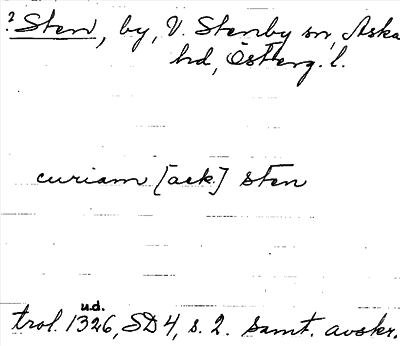 ? Sten, by, V. Stenby sn, Aska
hd, Österg. l.
curiam [ack.] sten
u.d.
trol. 1326, SD 4, s. 2. samt. avskr.